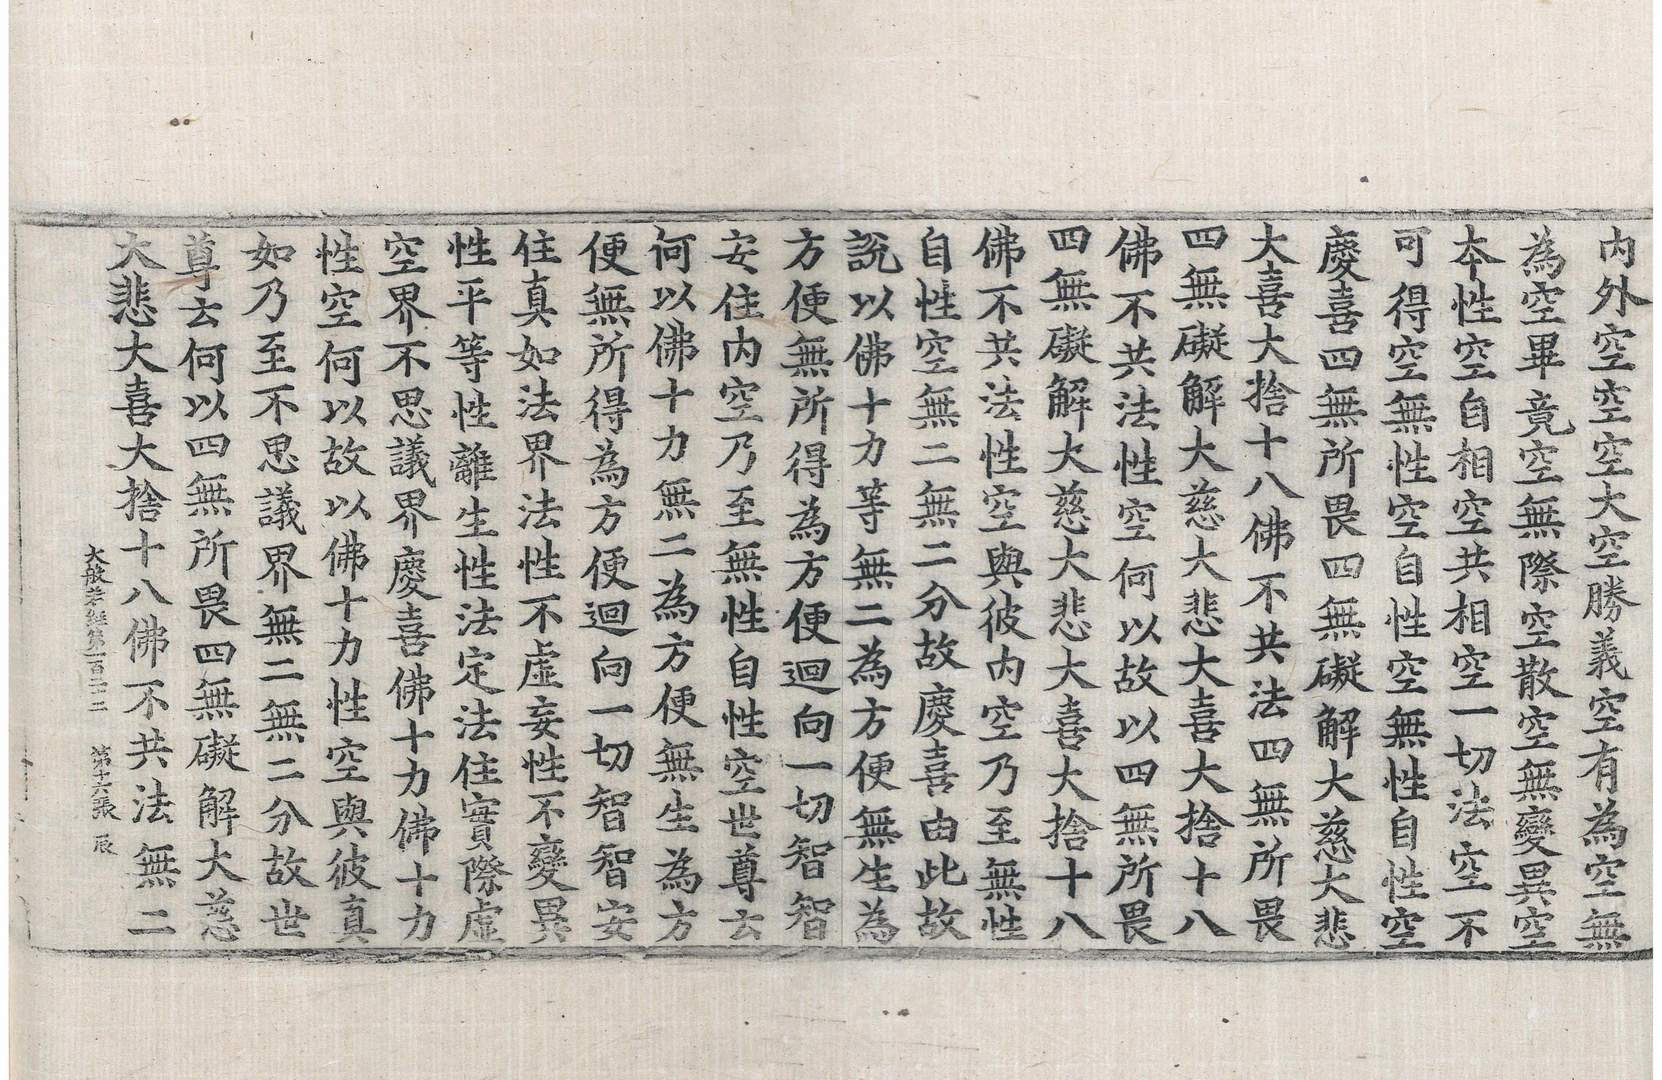 內外空空空大空勝義空有為空無
為空畢竟空無際空散空無變異空
本性空自相空共相空一切法空不
可得空無性空自性空無性自性空
慶喜四無所畏四無礙解大慈大悲
大喜大捨十八佛不共法四無所畏
四無礙解大慈大悲大喜大捨十八
佛不共法性空何以故以四無所畏
四無礙解大慈大悲大喜大捨十八
佛不共法性空與彼內空乃至無性
自性空無二無二分故慶喜由此故
說以佛十力等無二為方便無生為
方便無所得為方便迴向一切智智
安住內空乃至無性自性空世尊云
何以佛十力無二為方便無生為方
便無所得為方便迴向一切智智安
住真如法界法性不虛妄性不變異
性平等性離生性法定法住實際虛
空界不思議界慶喜佛十力佛十力
性空何以故以佛十力性空與彼真
如乃至不思議界無二無二分故世
尊云何以四無所畏四無礙解大慈
大悲大喜大捨十八佛不共法無二
大般若經第一百二十二 第十六張 辰